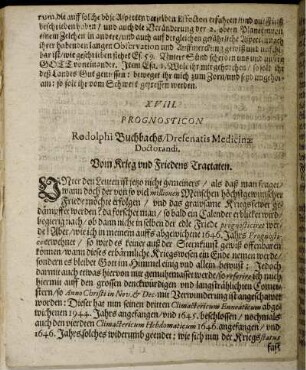 rumb die auff solche böse Aspecten derselben Effecten erfahren und mit Fleiß
beschrieben haben / und auch die Veränderung der 2. obern Planeten von
einem Zeichen in andere/ und auch auff dergleichen gefährliche Aspect. nach
ihrer habenden langen Observation und
für war geschrieben
GOTT voneinander.
deß Landes Gut geniessen: weigert ihr euch aber
sam: so solt ihr vom Schwert gefressen werden.
XVIII.
PROGNOSTICON
Rodolphi Buchbachs/Dresenatis Medicinæ
Doctorandi.
Vom Krieg und Friedens Tractaten.
UNter den Leuten ist jetzo nicht gemeiners / als daß man fraget/
wann doch der von so viel millionen Menschen höchstgewünschter
Friede möchte erfolgen / und das grausame Kriegsfewer ge-
dämpffet werden? da forschet man / so bald ein Calender erblicket wird
begierig nach / ob dann nicht in selben der edle Friede prognosticiret wer-
de? Aber/ wie ich in meinem auffs abgewichene 1646. Jahrs Prognosti-
co erwehnet / so wird es keiner auß der Sternkunst gewiß offenbaren
können/ wann dieses erbärmliche Kriegswesen ein Ende nemen werde/
sondern es bleibet Gott im Himmel einig und allein bewust: Jedoch
damit auch etwas hiervon nur gemuthmasset werde/ so referire ich mich
hiermit auff den grossen denckwürdigen und langsträhltichten Comet-
stern/ so Anno Christi in Nov. & Dec. mit Verwunderung ist angeschawet
worden: Dieser hat nun seinen dritten Climactericum Enneaticum ab-
gewichenen 1944. Jahrs angefangen/ und 1645. beschlossen / nochmals
auch den vierdten Climactericum Hebdomaticum 1646. angefangen / und
1646. Jahrs solches widerumb geendet: wie sich nun der Kriegs status
fast